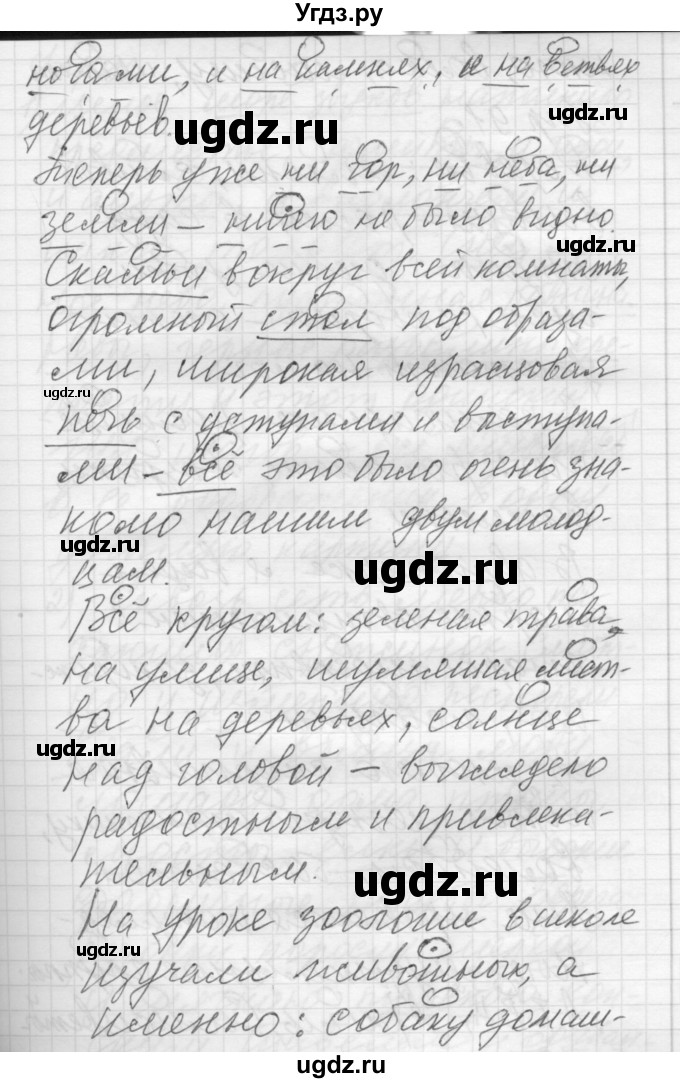 Угдз.ру
ногами, и на камнях, и на ветвях
деревьев.
ugdz.ru
Теперь уже ни гор, ни неба, ни
земли – ничего не было видно.
ugdz.ru
Скамьи вокруг всей комнаты,
огромный стол под образа-
ми, широкая изразцовая
ugdz.ru
печь с уступами и выступа-
ми – всё это было очень зна-
комо нашим двум молод-
ugdz.ru
цам.
ugdz.ru
Всё кругом: зеленая трава
на улице, шумящая лист-
ва на деревьях, солнце
ugdz.ru
над головой – выглядело
радостным и привлека-
тельным.
ugdz.ru
На уроке зоологии в школе
ugdz.ru
изучали животных, а
именно: собаку домаш-
ugdz.ru